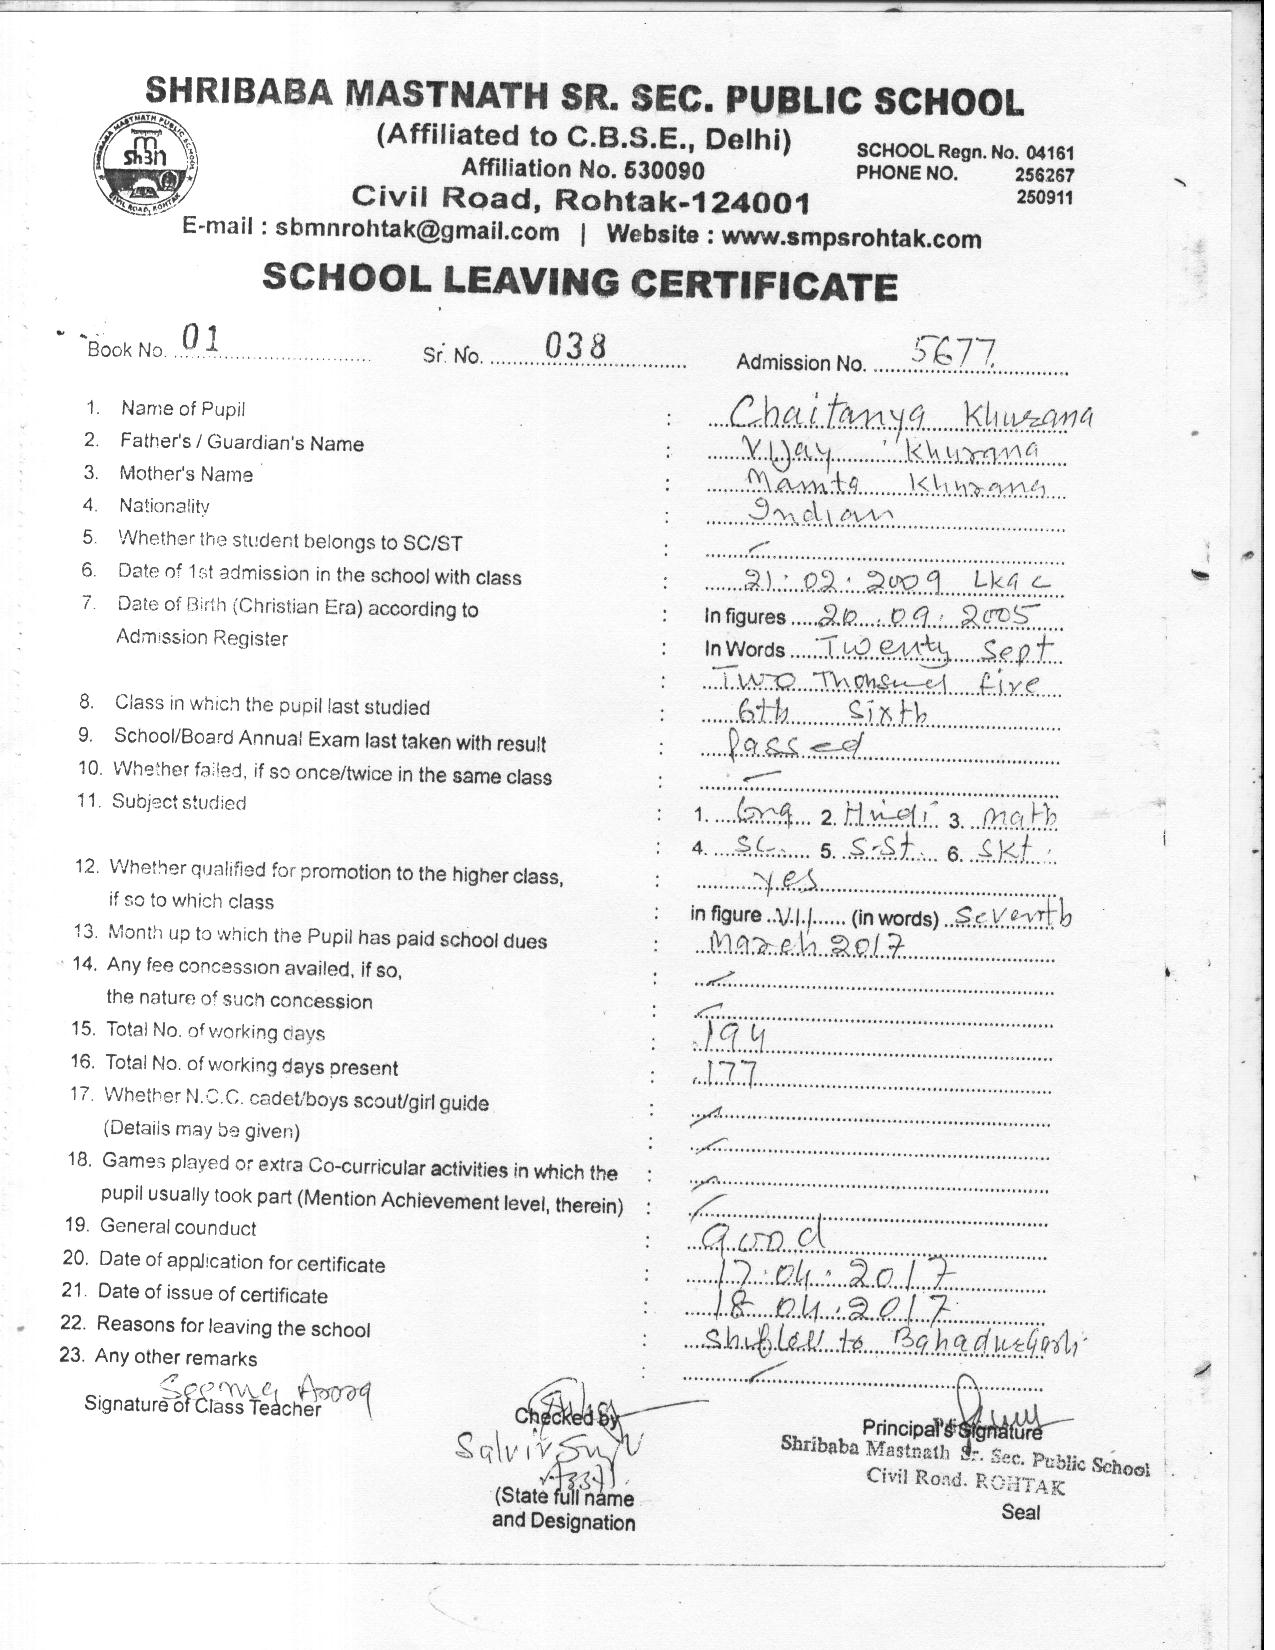 SHRIBABA MASTNATH SR. SEC. PUBLIC SCHOOL
(Affiliated to C.B.S.E., Delhi)
Affiliation No. 530090
SCHOOL Regn. No. 04161
PHONE NO. 256267
250911
Civil Road, Rohtak-124001
E-mail : sbmnrohtak@gmail.com | Website : www.smpsrohtak.com
SCHOOL LEAVING CERTIFICATE
Book No. 01 Sr. No. 038 Admission No. 5677
1. Name of Pupil : Chaitanya Khurana
2. Father's / Guardian's Name : Vijay Khurana
3. Mother's Name : Mamta Khurana
4. Nationality : Indian
5. Whether the student belongs to SC/ST :
6. Date of 1st admission in the school with class : 21.02.2009 LKG C
7. Date of Birth (Christian Era) according to : In figures 20.09.2005
Admission Register : In Words Twenty Sept
: Two Thousand five
8. Class in which the pupil last studied : 6th Sixth
9. School/Board Annual Exam last taken with result : Passed
10. Whether failed, if so once/twice in the same class :
11. Subject studied : 1. Eng 2. Hindi 3. Math
: 4. SC. 5. S.St. 6. Skt.
12. Whether qualified for promotion to the higher class, : yes
if so to which class : in figure VII (in words) Seventh
13. Month up to which the Pupil has paid school dues : March 2017
14. Any fee concession availed, if so, :
the nature of such concession :
15. Total No. of working days : 194
16. Total No. of working days present : 177
17. Whether N.C.C. cadet/boys scout/girl guide :
(Details may be given) :
18. Games played or extra Co-curricular activities in which the :
pupil usually took part (Mention Achievement level, therein) :
19. General counduct : Good
20. Date of application for certificate : 17.04.2017
21. Date of issue of certificate : 18.04.2017
22. Reasons for leaving the school : Shifted to Bahadurgarh
23. Any other remarks :
Seema Arora
Signature of Class Teacher
Checked by
(State full name
and Designation
Principal's Signature
Shribaba Mastnath Sr. Sec. Public School
Civil Road. ROHTAK
Seal